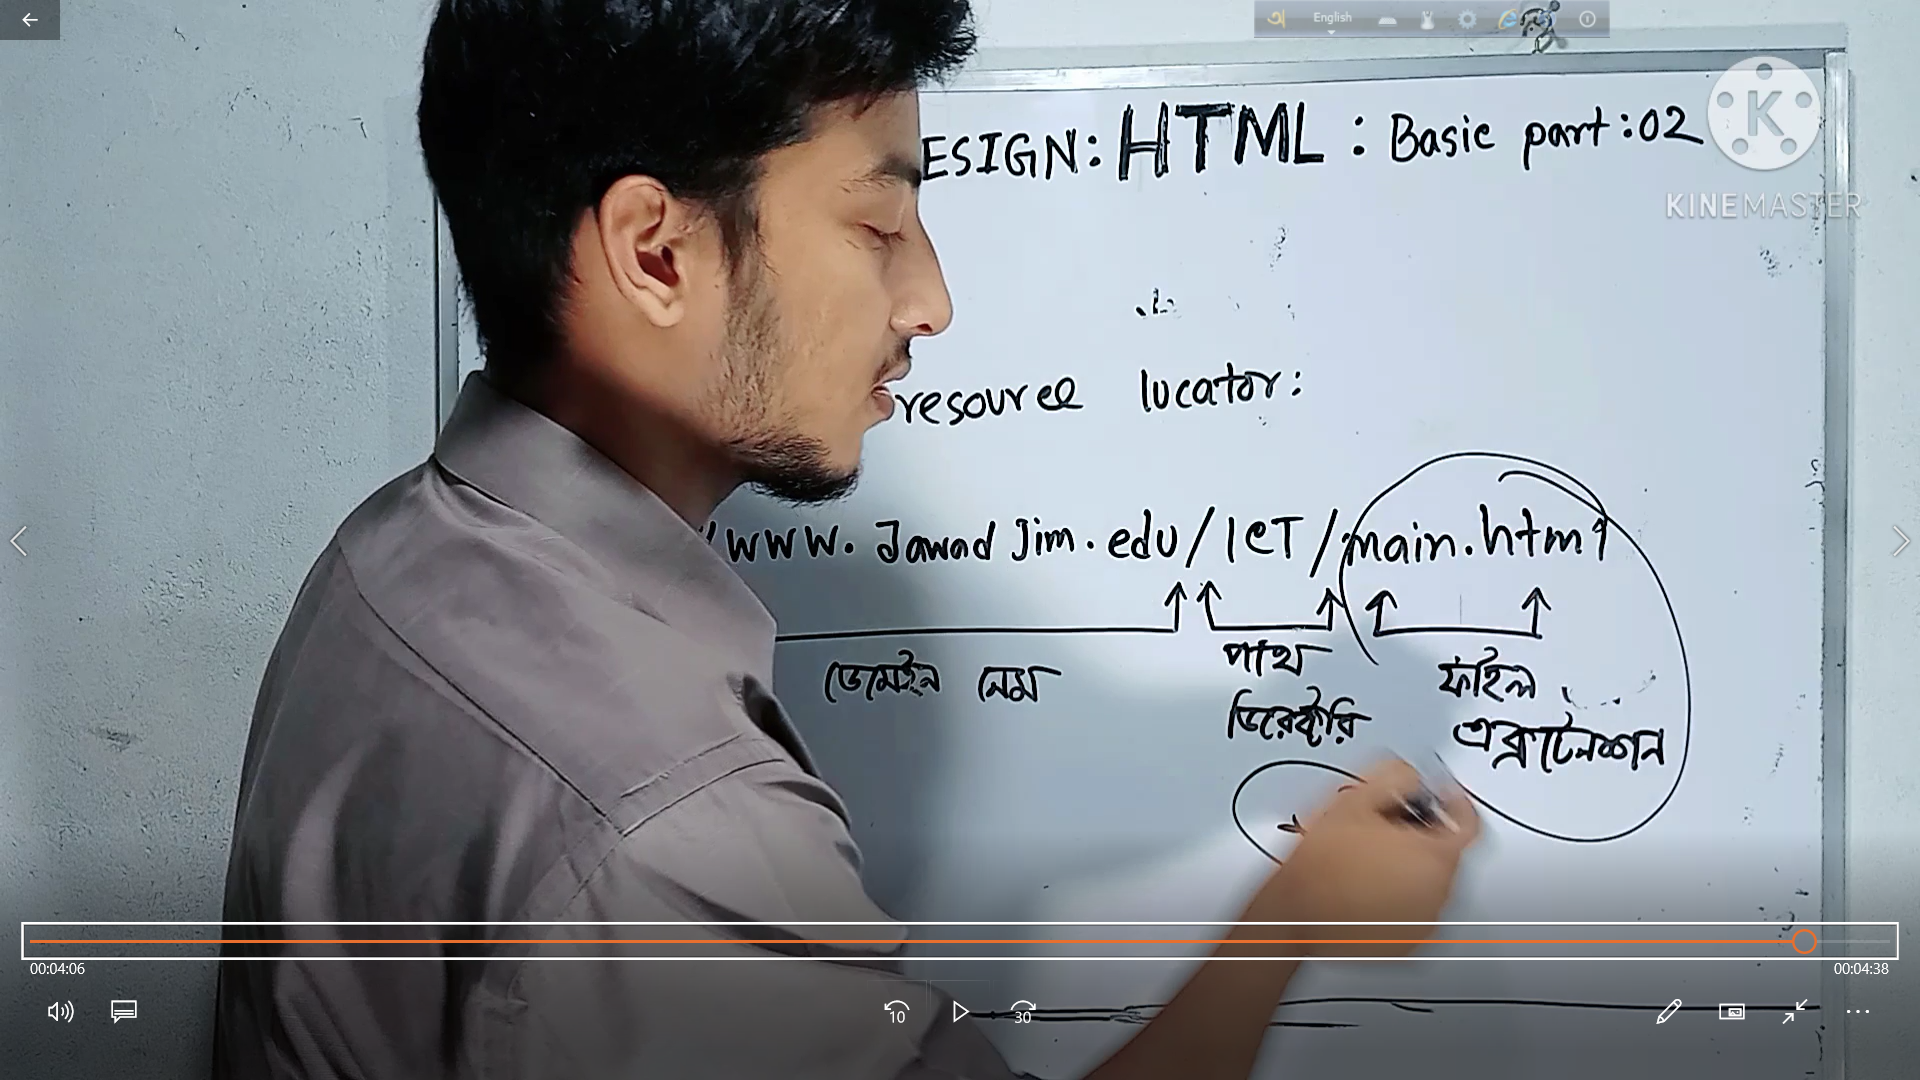 English
ESIGN: HTML : Basic part:02
K
KINEMASTER
resource locator:
www. Jawad Jim.edu/ICT/main.html
ডোমেইন নেম
পাথ
ডিরেক্টরি
ফাইল
এক্সটেনশন
00:04:06
00:04:38
10
30